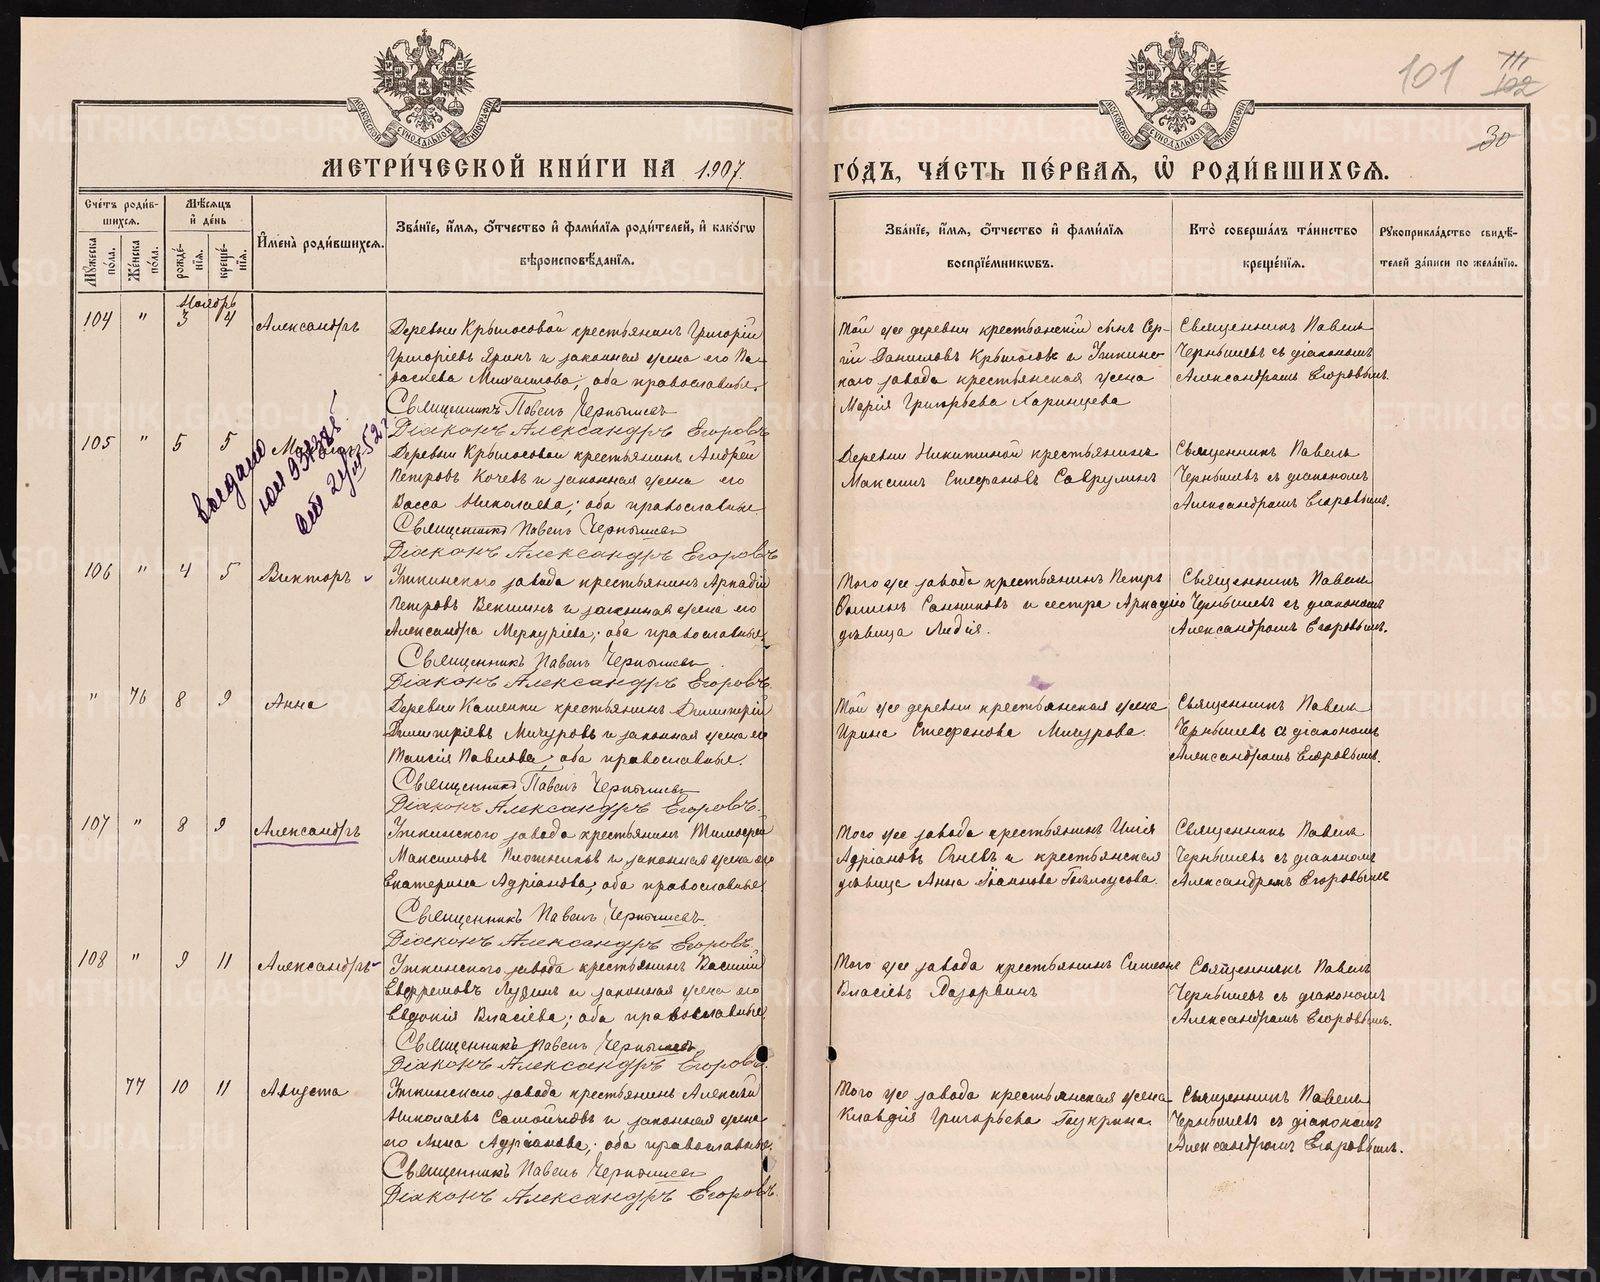 101
102
30
МЕТРИ́ЧЕСКОЙ КНИ́ГИ НА 1907 ГО́ДЪ, ЧА́СТЬ ПЕ́РВАЯ, Ѡ҆ РОДИ́ВШИХСЯ.
Сче́тъ роди́в-
шихся.
Мѣ́сяцъ
и҆ де́нь
Му́жеска
по́ла.
Же́нска
по́ла.
рожде́-
нїя.
креще́-
нїя.
И҆мена̀ роди́вшихся.
Зва́нїе, и҆́мя, ѻ҆́тчество и҆ фами́лїя роди́телей, и҆ како́гѡ
вѣроисповѣ́данїя.
Зва́нїе, и҆́мя, ѻ҆́тчество и҆ фами́лїя
воспрїе́мникѡвъ.
Кто̀ соверша́лъ та́инство
креще́нїя.
Рꙋкоприкла́дство свидѣ́-
телей за́писи по жела́нїю.
Ноябрь
104 " 3 4 Александръ
Деревни Крылосовой крестьянинъ Григорій
Григоріевъ Яринъ и законная жена его Па-
раскева Михаилова; оба православные.
Священникъ Павелъ Чернышевъ
Діаконъ Александръ Егоровъ
Той же деревни крестьянскій сынъ Сер-
гій Даниловъ Крылосовъ и Уткинс-
каго завода крестьянская жена
Марія Григорьева Харинцева
Священникъ Павелъ
Чернышевъ съ діакономъ
Александромъ Егоровымъ.
105 " 5 5
выдано
Деревни Крылосовой крестьянинъ Андрей
Петровъ Кочевъ и законная жена его
Васса Николаева; оба православные
Священникъ Павелъ Чернышевъ
Діаконъ Александръ Егоровъ
Деревни Никитиной крестьянинъ
Максимъ Стефановъ Саврулинъ
Священникъ Павелъ
Чернышевъ съ діакономъ
Александромъ Егоровымъ.
106 " 4 5 Викторъ
Уткинского завода крестьянинъ Аркадій
Петровъ Векшинъ и законная жена его
Александра Меркуріева; оба православные
Священникъ Павелъ Чернышевъ
Діаконъ Александръ Егоровъ.
Того же завода крестьянинъ Петръ
Санниковъ и сестра Аркадію
дѣвица Лидія.
Священникъ Павелъ
Чернышевъ съ діакономъ
Александромъ Егоровымъ.
" 76 8 9 Анна
Деревни Каменки крестьянинъ Димитрій
Димитріевъ Мичуровъ и законная жена его
Таисія Павлова; оба православные.
Священникъ Павелъ Чернышевъ
Діаконъ Александръ Егоровъ.
Той же деревни крестьянская жена
Ирина Стефанова Мичурова.
Священникъ Павелъ
Чернышевъ съ діакономъ
Александромъ Егоровымъ.
107 " 8 9 Александръ
Уткинского завода крестьянинъ Тимофей
Максимовъ Плотниковъ и законная жена его
Екатерина Адріанова; оба православные.
Священникъ Павелъ Чернышевъ
Діаконъ Александръ Егоровъ.
Того же завода крестьянинъ Илія
Адріановъ Огневъ и крестьянская
дѣвица Анна Іоаннова Бѣлоусова.
Священникъ Павелъ
Чернышевъ съ діакономъ
Александромъ Егоровымъ
108 " 9 11 Александръ
Уткинского завода крестьянинъ Василій
Евфремовъ Лузинъ и законная жена его
Евдокія Власіева; оба православные.
Священникъ Павелъ Чернышевъ
Діаконъ Александръ Егоровъ.
Того же завода крестьянинъ Симеонъ
Власіевъ Дозорвинъ
Священникъ Павелъ
Чернышевъ съ діакономъ
Александромъ Егоровымъ.
77 10 11 Августа
Уткинского завода крестьянинъ Алексій
Николаевъ Самойловъ и законная жена
его Анна Адріанова; оба православные.
Священникъ Павелъ Чернышевъ
Діаконъ Александръ Егоровъ.
Того же завода крестьянская жена
Клавдія Григорьева Гоукрина
Священникъ Павелъ
Чернышевъ съ діакономъ
Александромъ Егоровымъ.
METRIKI.GASO-URAL.RU